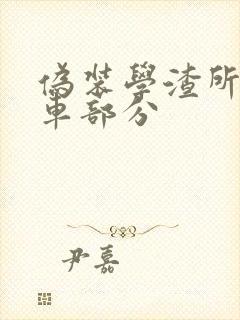 偽裝學渣所
車部分
尹嘉